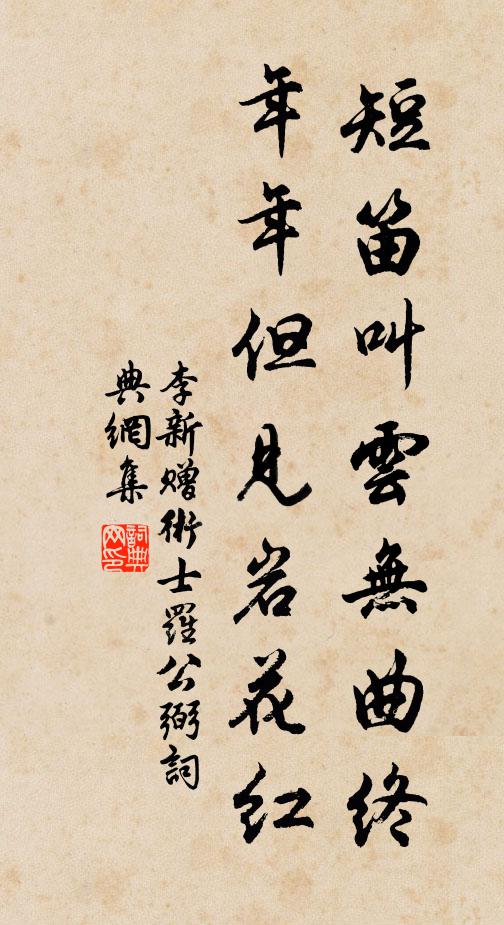 短笛叫雲無曲終
年年但見岩花紅
李新贈術士羅公弼詞
典網集
詞典網印